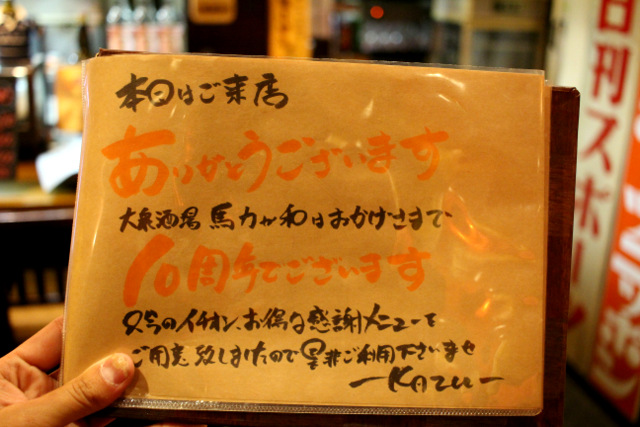 本日はご来店
ありがとうございます
大衆酒場 馬力が和はおかげさまで
10周年でございます
のイチオシ、お得な感謝メニューを
ご用意致しましたので是非ご利用下さいませ
—KAZU—
日刊スポー